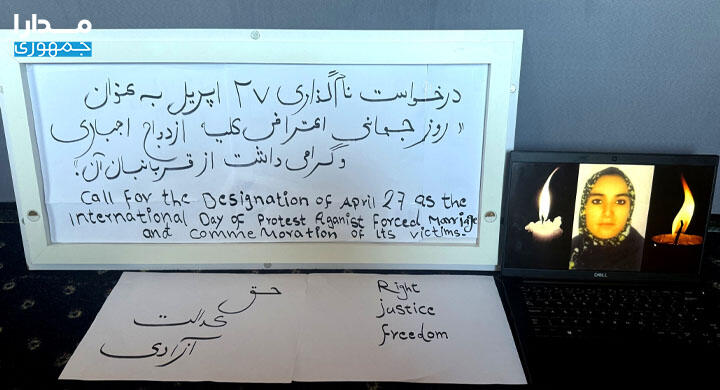 مدارا
جمهوری
درخواست نام‌گذاری ۲۷ اپریل به عنوان
«روز جهانی اعتراض علیه ازدواج اجباری
و گرامی داشت از قربانیان آن!
Call For the Designation of April 27 as the
International Day of Protest Aganist Forced Marriaje
and Commemoration of Its victims.
حق
عدالت
آزادی
Right
justice
freedom
DELL